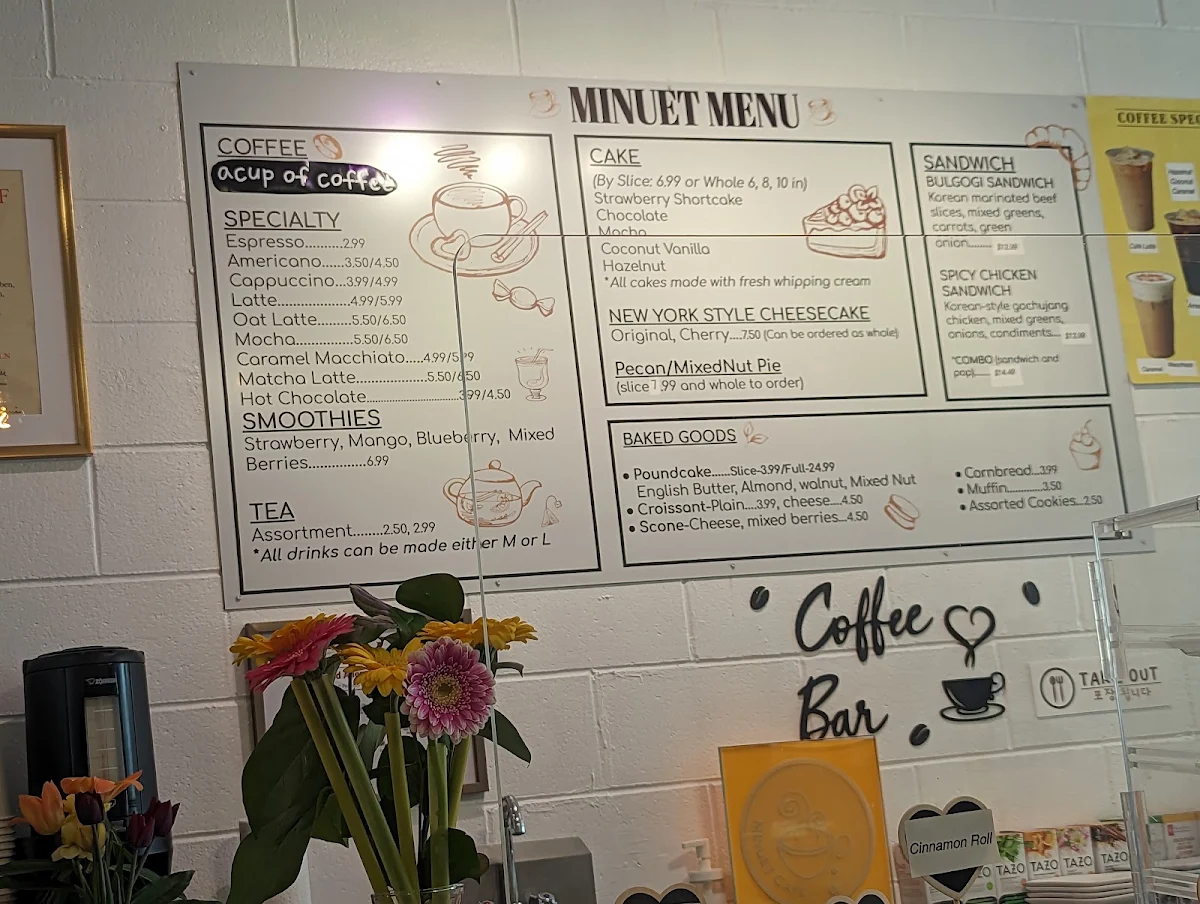 MINUET MENU
COFFEE
acup of coffee
SPECIALTY
Espresso..........2.99
Americano.....3.50/4.50
Cappuccino...3.99/4.99
Latte...................4.99/5.99
Oat Latte.........5.50/6.50
Mocha...............5.50/6.50
Caramel Macchiato.....4.99/5.99
Matcha Latte.........................5.50/6.50
Hot Chocolate..............................3.99/4.50
SMOOTHIES
Strawberry, Mango, Blueberry, Mixed
Berries...............6.99
TEA
Assortment........2.50, 2.99
*All drinks can be made either M or L
CAKE
(By Slice: 6.99 or Whole 6, 8, 10 in)
Strawberry Shortcake
Chocolate
Mocha
Coconut Vanilla
Hazelnut
*All cakes made with fresh whipping cream
NEW YORK STYLE CHEESECAKE
Original, Cherry....7.50 (Can be ordered as whole)
Pecan/MixedNut Pie
(slice 7.99 and whole to order)
SANDWICH
BULGOGI SANDWICH
Korean marinated beef
slices, mixed greens,
carrots, green
onion.........
SPICY CHICKEN
SANDWICH
Korean-style gochujang
chicken, mixed greens,
onions, condiments....
*COMBO (sandwich and
pop)......
BAKED GOODS
• Poundcake......Slice-3.99/Full-24.99
English Butter, Almond, walnut, Mixed Nut
• Croissant-Plain....3.99, cheese....4.50
• Scone-Cheese, mixed berries...4.50
• Cornbread...3.99
• Muffin...........3.50
• Assorted Cookies...2.50
COFFEE SPEC
Coffee
Bar
TAKE OUT
포장 됩니다
Cinnamon Roll
TAZO
TAZO
TAZO
TAZO